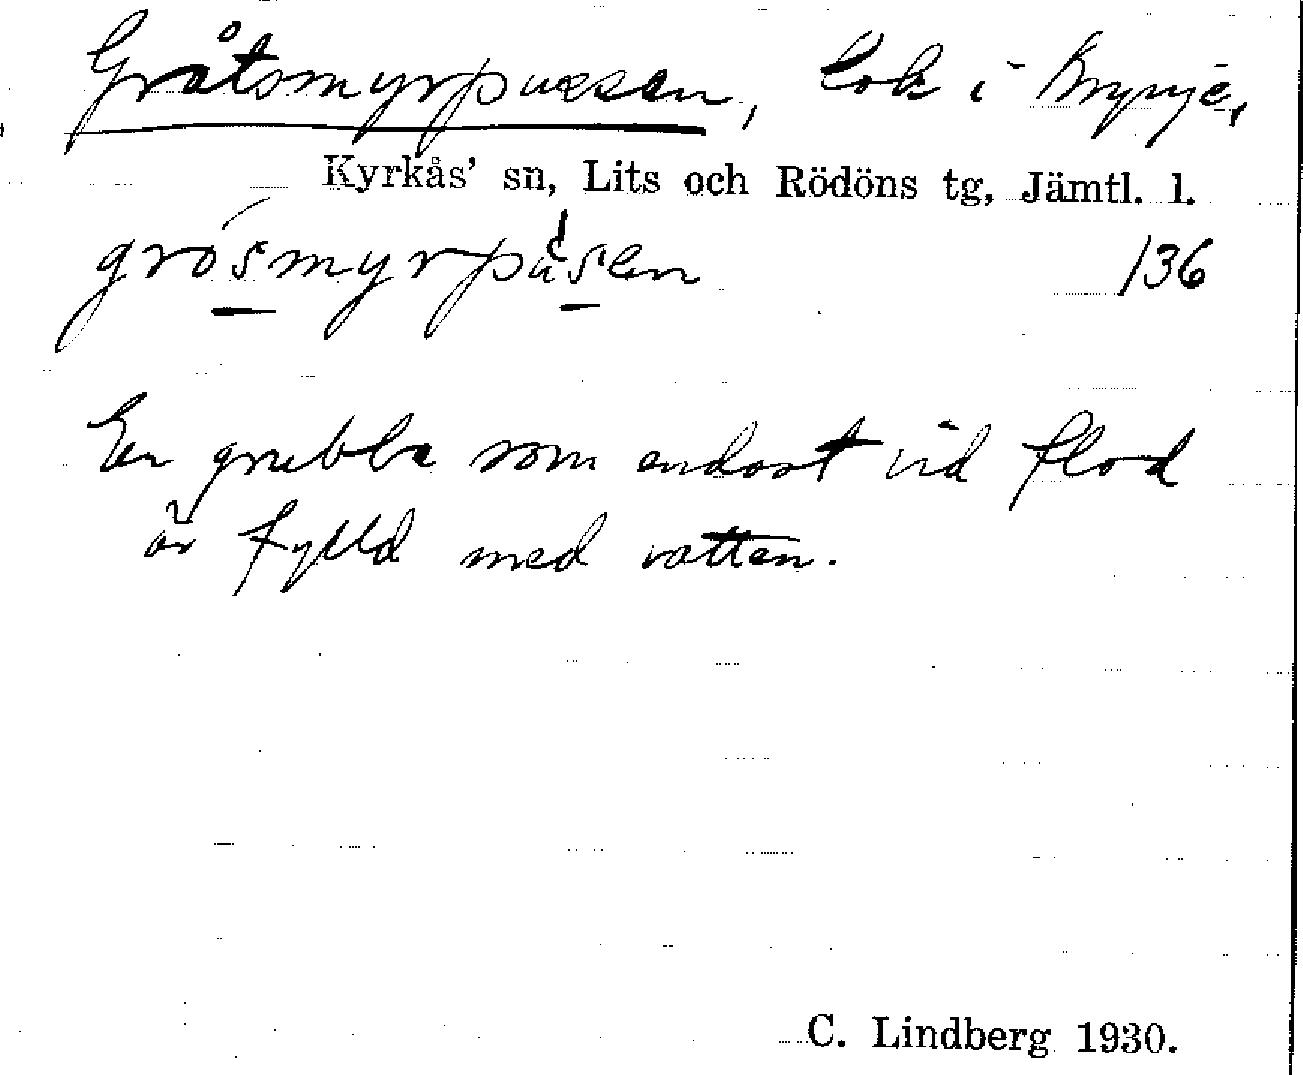 Gråtsmyrpussen, lok i Brynje,
Kyrkås' sn, Lits och Rödöns tg, Jämtl. l.
136
En grubba som endast vid flod
är fylld med vatten.
C. Lindberg 1930.